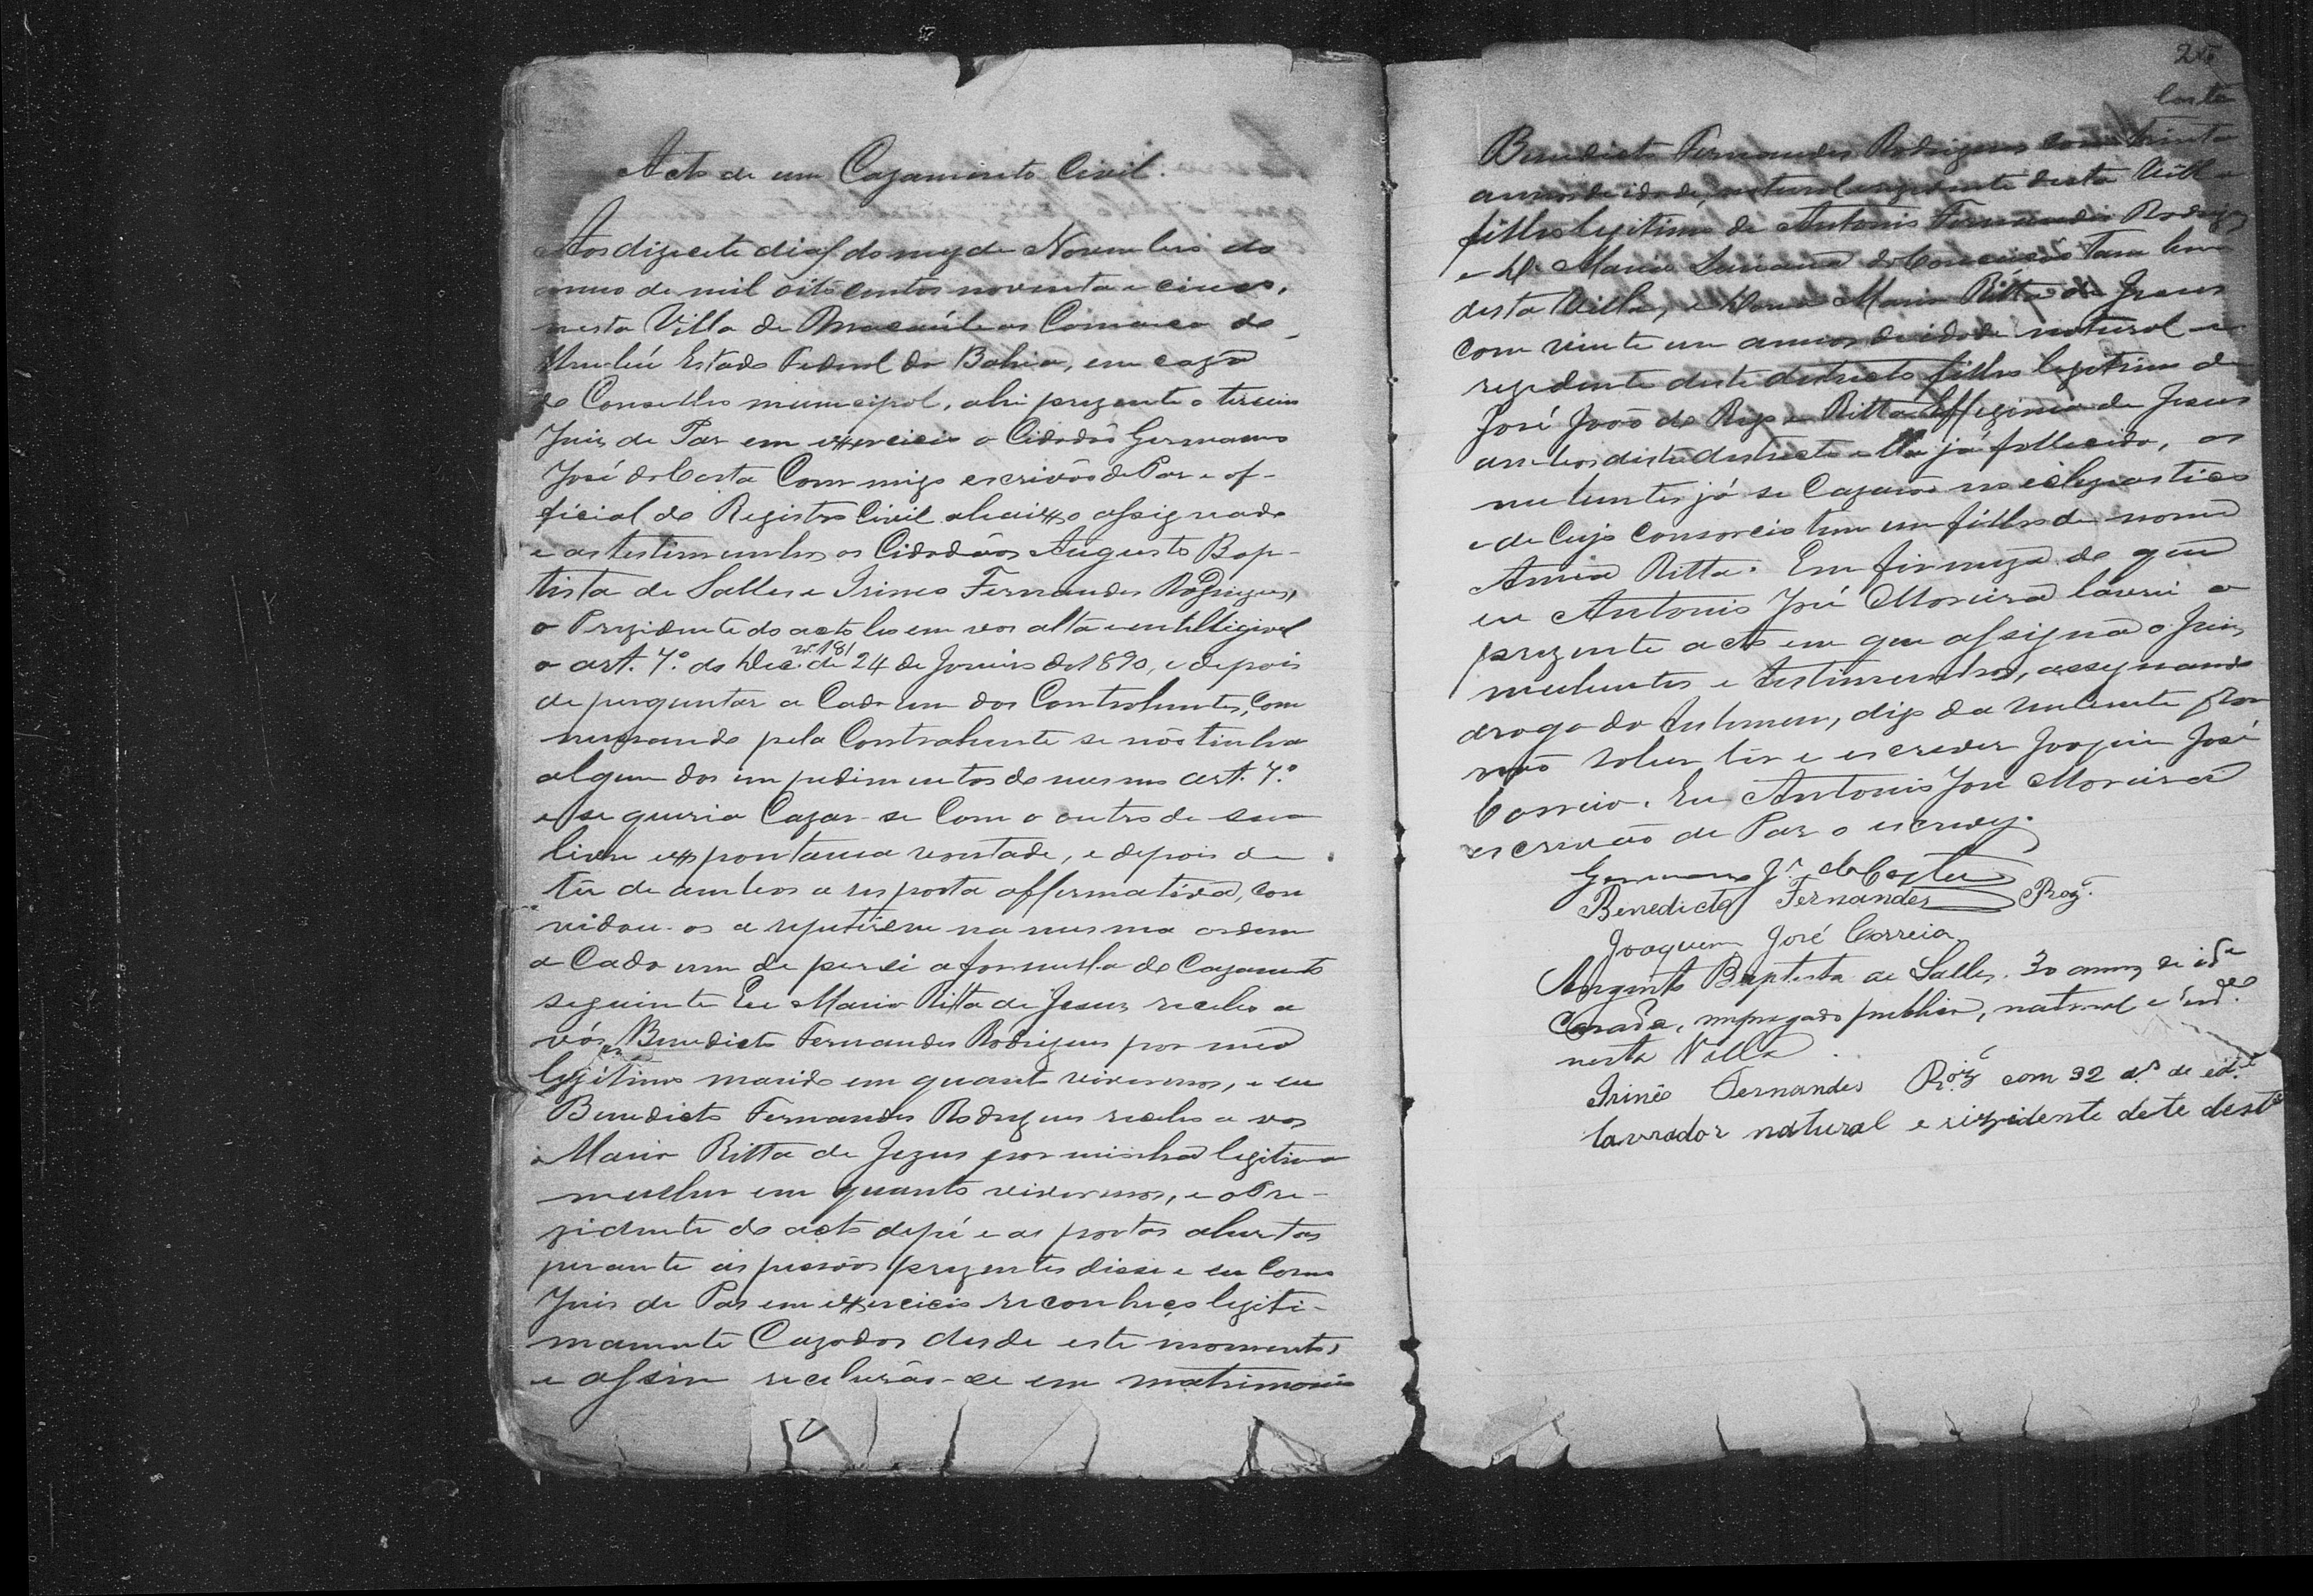 Acto de um Cazamento Civil.
Aos dizecete dias do mez de Novembro do
anno de mil oito centos noventa e cinco,
nesta Villa de Macaúbas Comarca do
Urubú Estado Federal da Bahia, em caza
do Conselho municipal, ahi prezente o terceiro
Juis de Pas em exercicio o Cidadão Germano
José da Costa Commigo escrivão de Pas e of-
ficial do Registro Civil abaixo assignado
e as testimunhas os Cidadãos Augusto Bap-
tista de Salles e Irineo Fernandes Rodrigues,
o Prezidente do acto leo em vos alta e entelligivel
o art. 7.º do Dec. nº 181 de 24 de Janeiro de 1890, e depois
de perguntar a Cada um dos Contrahentes, com
messando pela Contrahente se não tinha
algum dos impedimentos do mesmo art. 7.º
e se queria Cazar-se Com o outro de sua
livre e expontania vontade, e depois de
têr de ambos a resposta affirmativa, con
vidou-os a repitirem na mesma ordem
a Cada um de persi a formula do Cazamento
seguinte Eu Maria Ritta de Jesus recebo a
vós Benedicto Fernandes Rodrigues por meo
legitimo marido em quanto vivermos, e eu
Benedicto Fernandes Rodrigues recebo a vos
Maria Ritta de Jezus por minha legitima
mulher em quanto vivermos, e o Pre-
zidente do acto depé e as portas abertas
perante as pessoas prezentes disse e eu Como
Juis de Pas em exercicio reconheço legiti-
mamente Cazados desde este momento,
e assim receberão-se em matrimonio
Costa
Benedicto Fernandes Rodrigues com trinta
annos de idade, natural e rezidente desta Villa
filho legitimo de Antonio Fernandes Rodrigues
e D. Maria da Conceicão tam bem
desta Villa, e Dona Maria Ritta de Jesus
com vinte um annos de idade natural e
rezidente deste destricto filha legitima de
José João do Rego e Ritta Effiginia de Jesus
ambos deste destricto já fallecido, os
nubentes já se Cazarão no eclegiastico
e de Cujo consorcio tem um filho de nome
Anna Ritta. Em firmeza do que
eu Antonio José Moreira lavrei o
prezente acto em que assignão o Juis,
nubentes e testimunhas, assignando
arogo da testemun, digo da nubente por
não saber lêr e escrever Joaquim José
Correia. Eu Antonio José Moreira
escrivão de Pas o escrevy.
Germano Jé. da Costa
Benedicto Fernandes Roz.
Joaquim José Correia
Augusto Baptista de Salles, 30 annos de ide
Casado, empregado publico, natural e
nesta Villa.
Irinêo Fernandes Roiz com 32 as de ide.
lavrador natural e rizidente dete desto